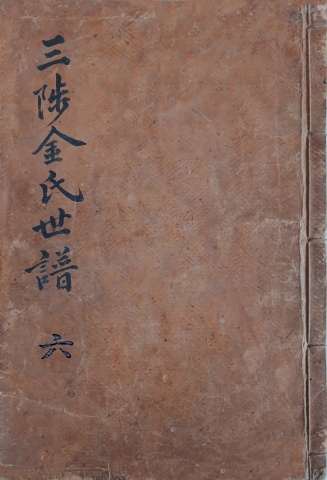 三陟金氏世譜
六